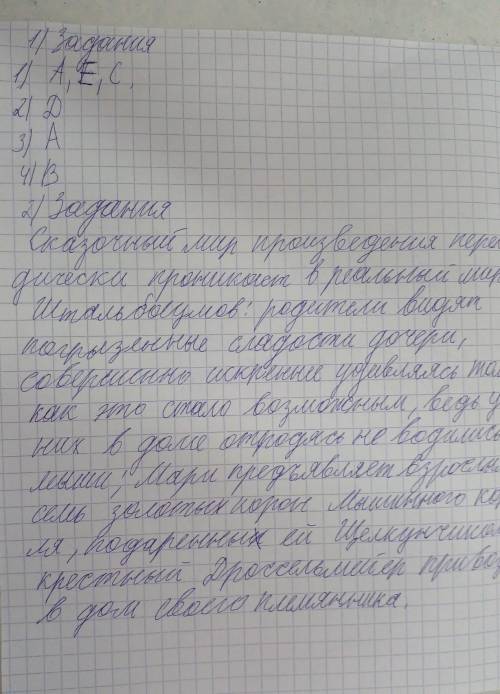 1) Задания
1) А, Е, С,
2) D
3) А
4) В
2) Задания
Сказочный мир произведения пере
дически проникает в реальный мир
Штальбаумов: родители видят
погрызенные сладости дочери,
совершенно искренне удивляясь том
как это стало возможным, ведь у
них в доме отродясь не водились
мыши; Мари предъявляет взрослы
семь золотых корон Мышиного ко
ля, подаренных ей Щелкунчиком
крестный Дроссельмейер приво
в дом своего племянника.